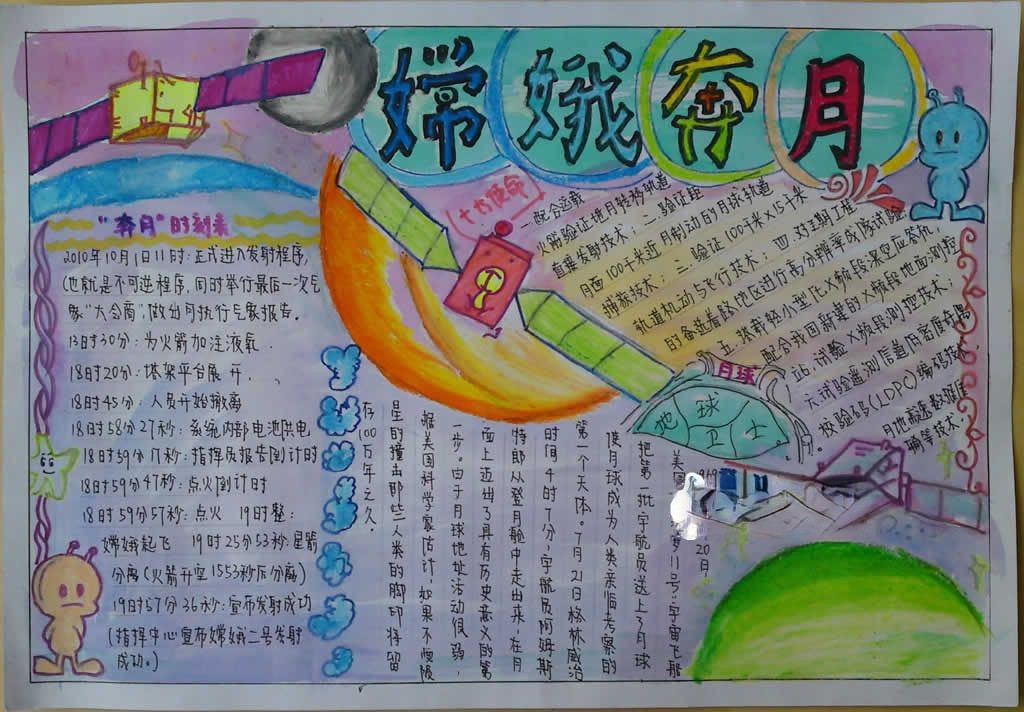 嫦娥奔月
"奔月"时刻表
2010年10月1日11时:正式进入发射程序,
(也就是不可逆程序,同时举行最后一次气
象"大会商",做出月执行气象报告。
13日寸30分:为火箭加注液氧.
18时20分:塔架平台展开.
18时45分:人员开始撤离
18时58分27秒:系统内部电池供电
18时59分17秒:指挥员报告倒计时
18时59分47秒:点火倒计时
18时59分57秒:点火 19时整:
嫦娥起飞 19时25分53秒:星箭
分离(火箭升空1553秒后分离)
19时57分36秒:宣布发射成功
(指挥中心宣布嫦娥二号发射
成功。)
十大使命
一.配合运载
火箭验证地月转移轨道
直接发射技术;二.验证距
月面100千米近月制动的月球轨道
捕获技术;三.验证100千米×15千米
轨道机动与飞行技术;四.对二期工程
的备选着陆地区进行高分辨率成像试验;
五.搭载轻小型化X频段深空应答机,
配合我国新建的X频段地面测控
站,试验X频段测控技术;
六.试验遥测信道月高度奇偶
校验码(LDPC)编码技
月地高速数据库
辆等技术.
月球
地球卫士
美国 11号宇宙飞船
把第一批宇航员送上了月球
使月球成为人类亲临考察的
第一个天体。7月21日格林威治
时间4时7分,宇航员阿姆斯
特郎从登月舱中走出来,在月
面上迈出了具有历史意义的第
一步。由于月球地址活动很弱,
据美国科学家估计,如果不被陨
星的撞击那些人类的脚印将留
存100万年之久.